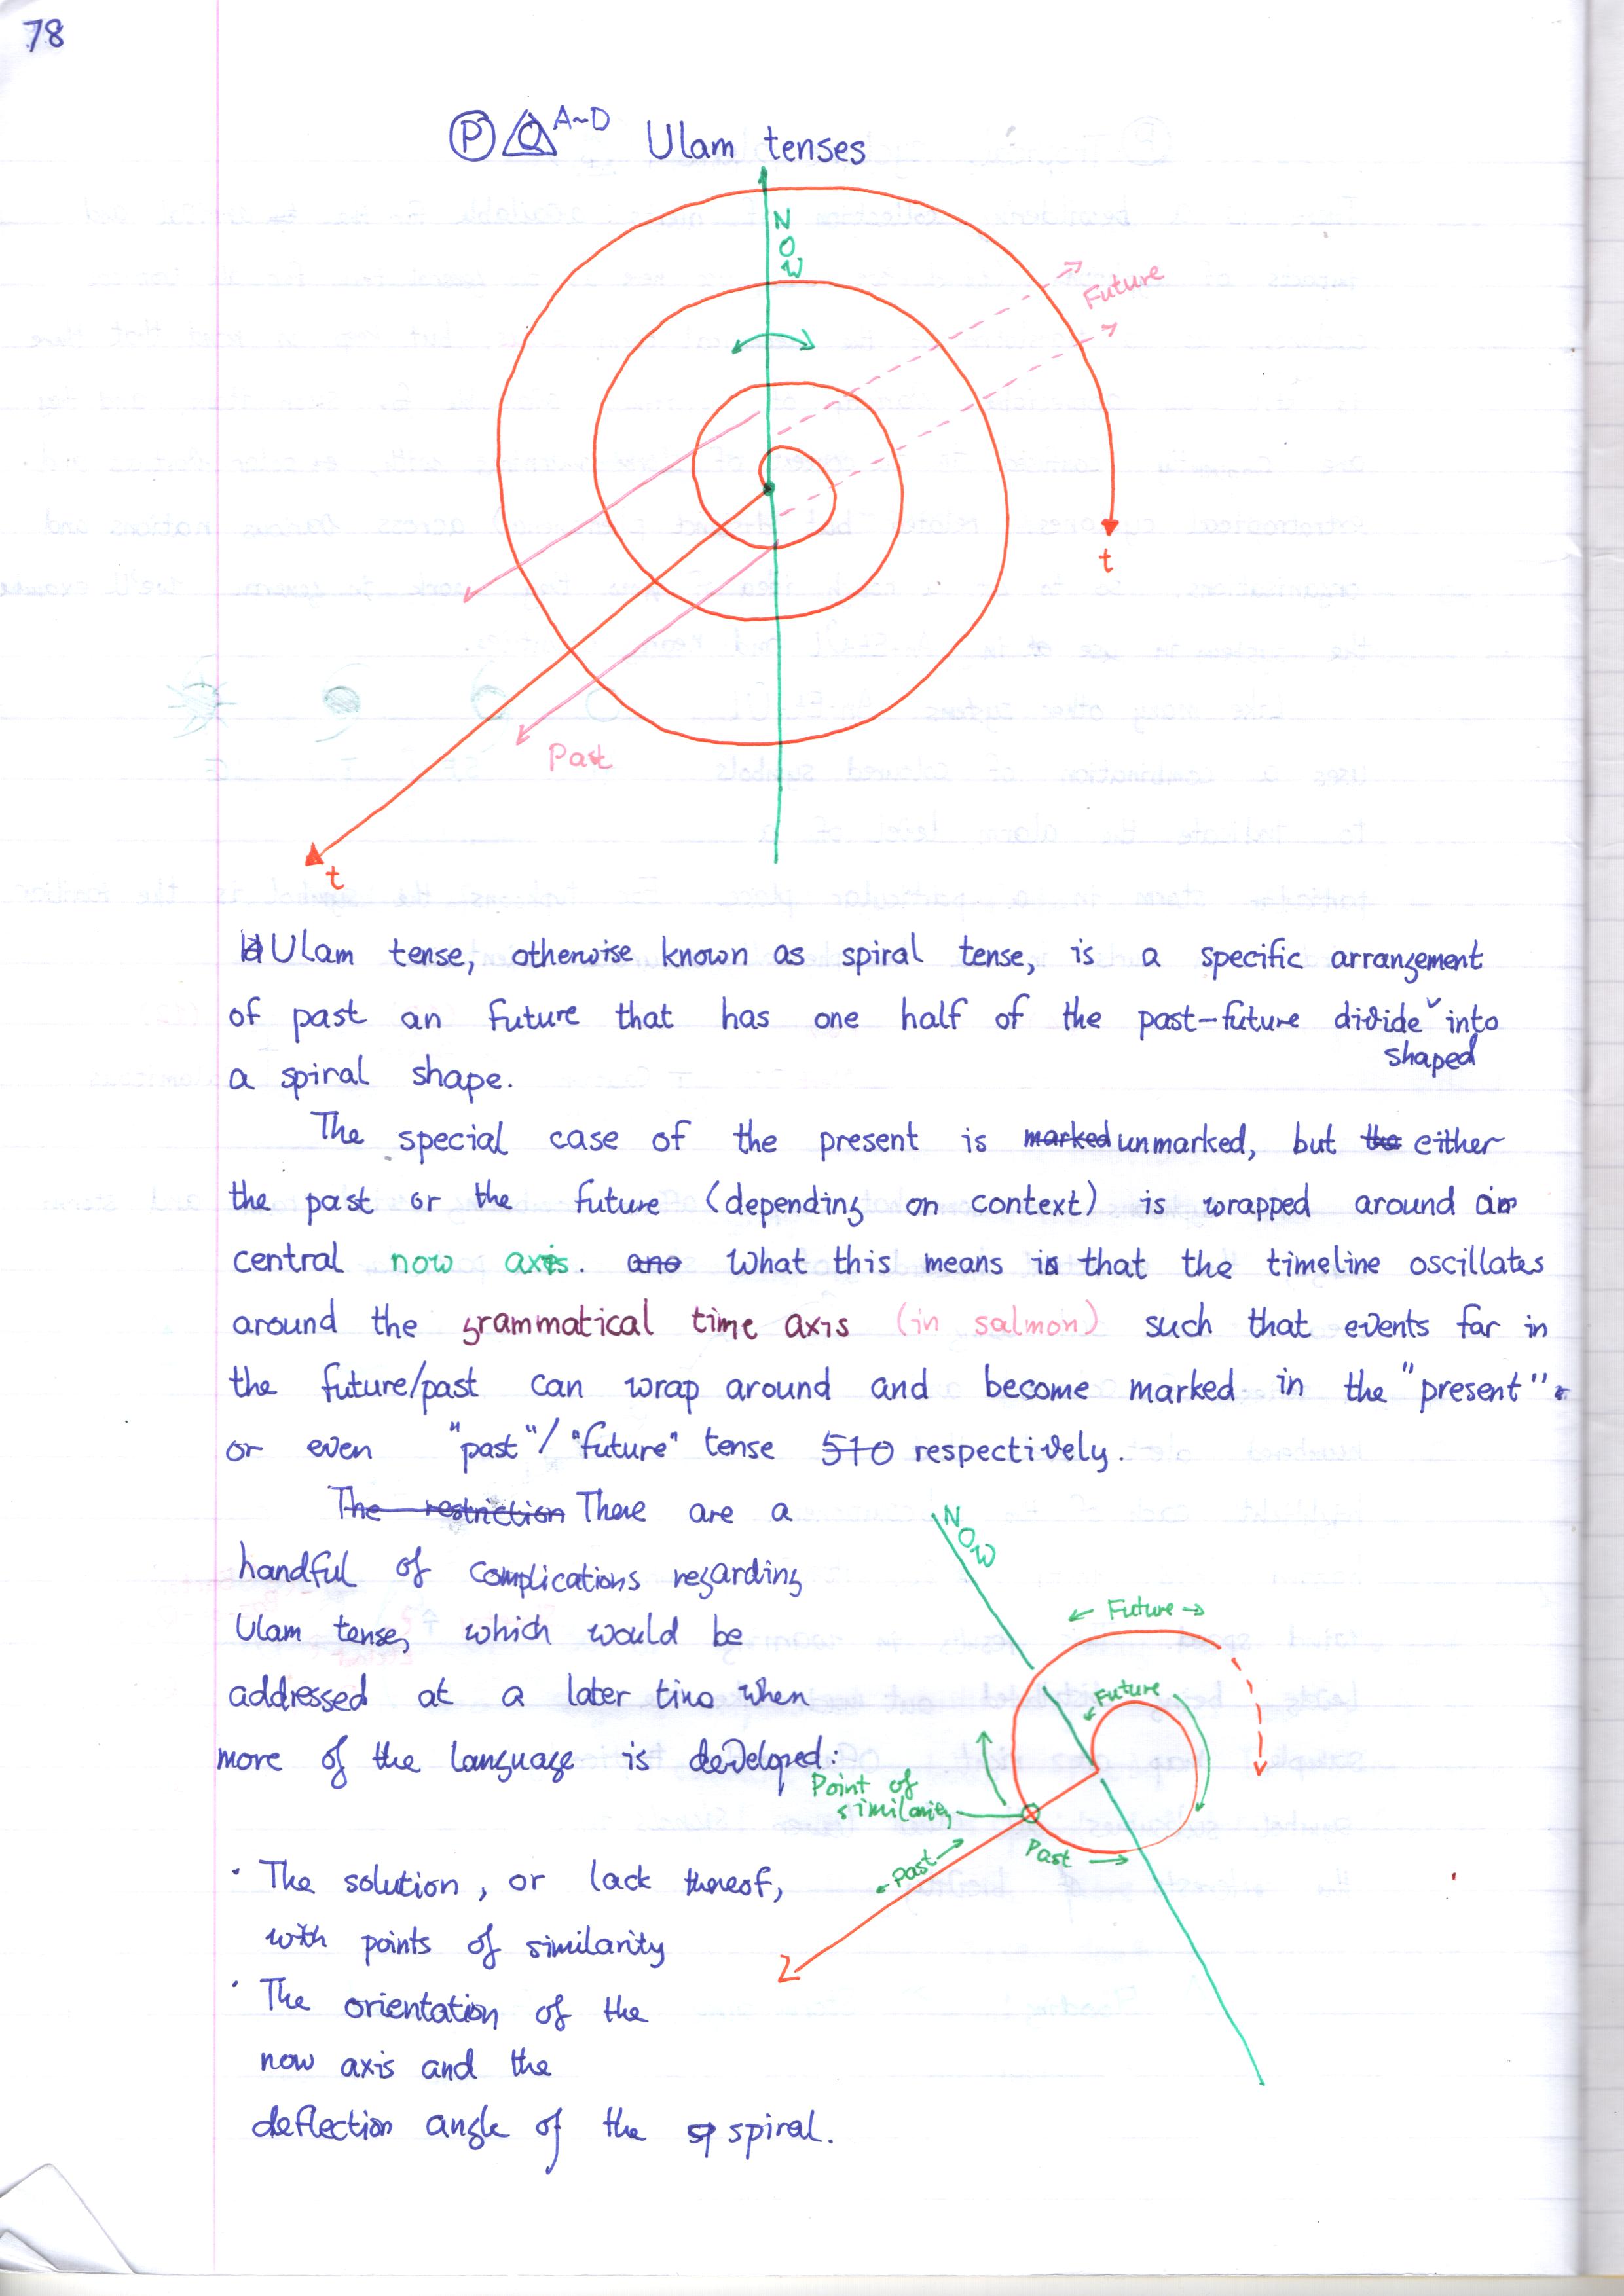 78
P Q A~D Ulam tenses
NOW
Future
t
Past
t
Ulam tense, otherwise known as spiral tense, is a specific arrangement
of past an future that has one half of the past-future divide shaped into
a spiral shape.
The special case of the present is marked unmarked, but the either
the past or the future (depending on context) is wrapped around a
central now axis. and What this means is that the timeline oscillates
around the grammatical time axis (in salmon) such that events far in
the future/past can wrap around and become marked in the "present"
or even "past"/"future" tense 510 respectively.
The restriction There are a
handful of complications regarding
Ulam tense, which would be
addressed at a later time when
more of the language is developed:
· The solution, or lack thereof,
with points of similarity
· The orientation of the
now axis and the
deflection angle of the sp spiral.
NOW
← Future →
Future
Point of
similarity
Past
Past